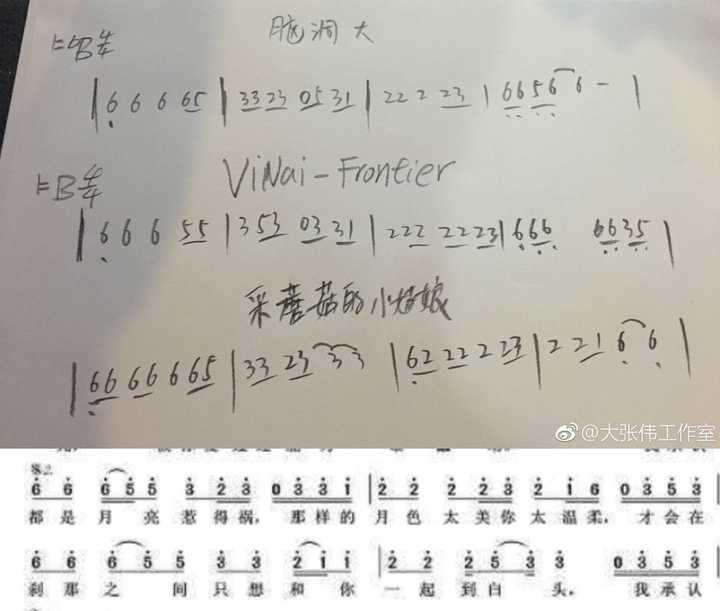 1=♭B 4/4 脑洞大
| 6̣ 6 6 65 | 33 23 05 31 | 22 2 23 | 66 56 6 - |
1=B 4/4 ViNai-Frontier
| 6̣ 6 6 55 | 3 53 03 31 | 222 2223 | 666 6635 |
采蘑菇的小姑娘
| 66 66 6 65 | 33 23 3 3 | 62 22 2 23 | 2 21 6̣ 6̣ |
@大张伟工作室
6 6 6 5 5 3 2 3 0 3 3 1 | 2 2 2 2 3 2 1 6 0 3 5 3
都是月亮惹得祸，那样的月色太美你太温柔，才会在
6 6 6 5 5 3 3 2 1 1 | 2 2 2 5 3 3 0 3 5 3
刹那之间只想和你一起到白头。我承认